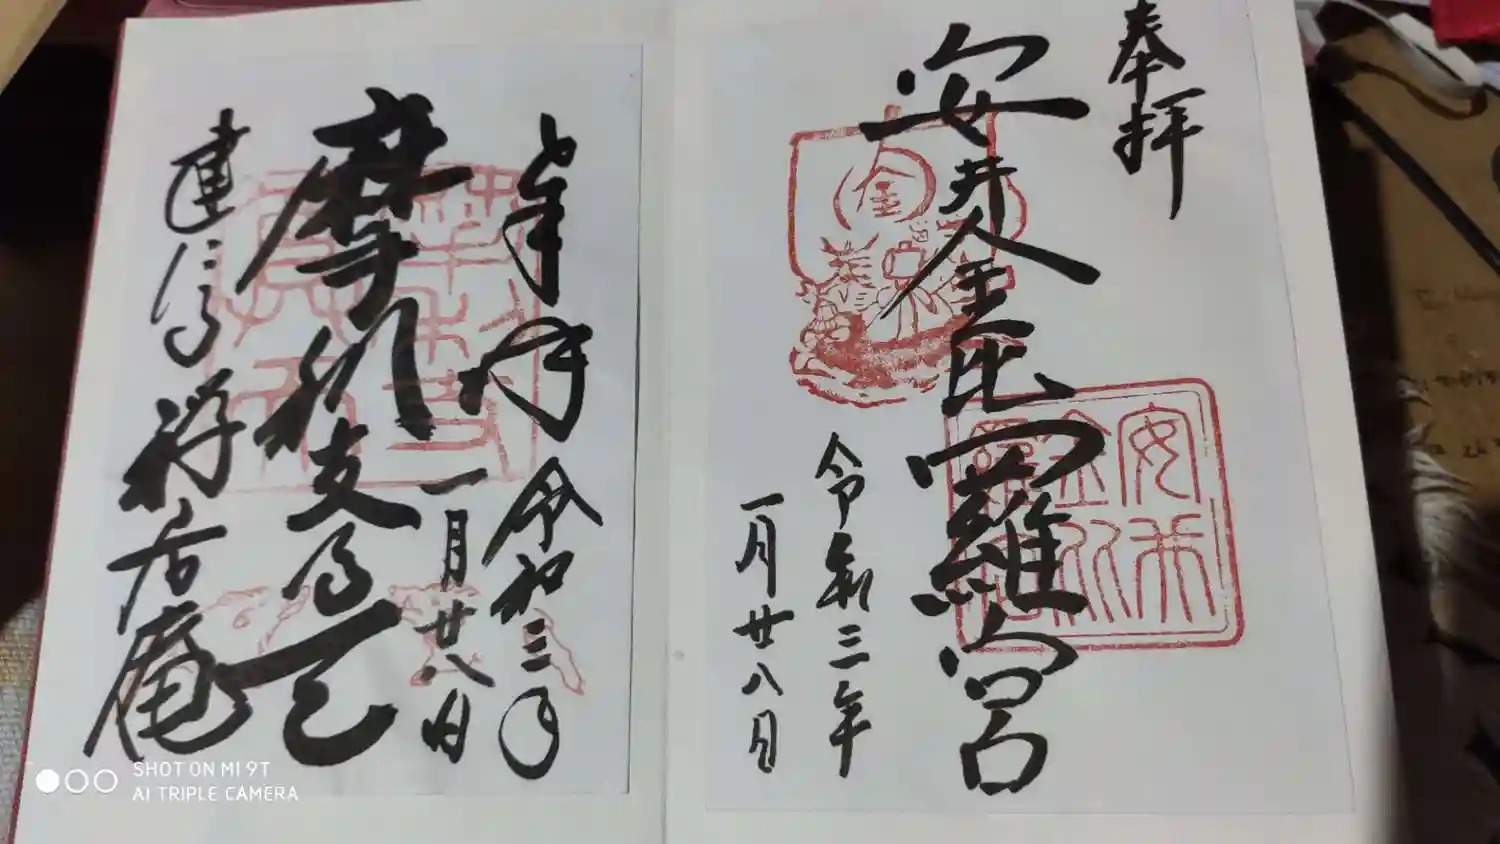 奉拝
安井金毘羅宮
令和三年
一月廿八日
奉拝 令和三年
一月廿八日
摩利支尊天
建仁寺 禅居庵
金
安井
金比
羅宮
SHOT ON MI 9T
AI TRIPLE CAMERA